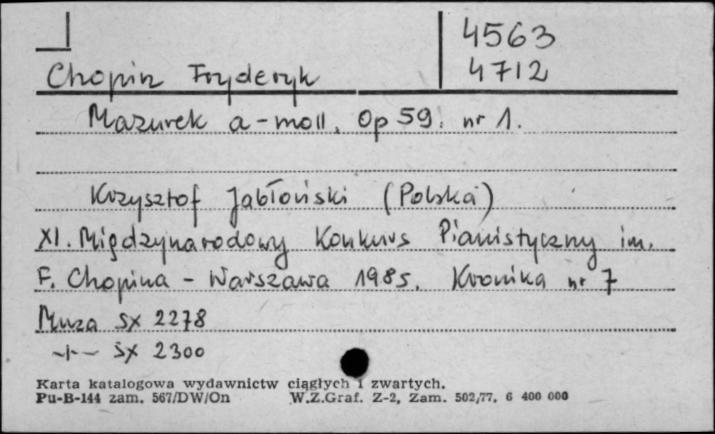 4563
Chopin Fryderyk 4712
Mazurek a-moll, Op 59. nr 1.
Krzysztof Jabłoński (Polska)
XI. Międzynarodowy Konkurs Pianistyczny im.
F. Chopina - Warszawa 1985. Kronika nr 7
Muza SX 2278
-"- SX 2300
Karta katalogowa wydawnictw ciągłych i zwartych.
Pu-B-144 zam. 567/DW/On W.Z.Graf. Z-2, Zam. 502/77, 6 400 000